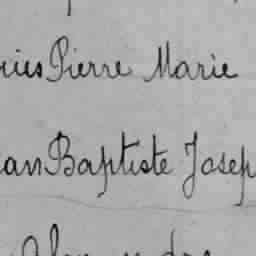 uis Pierre Marie
ean Baptiste Josep